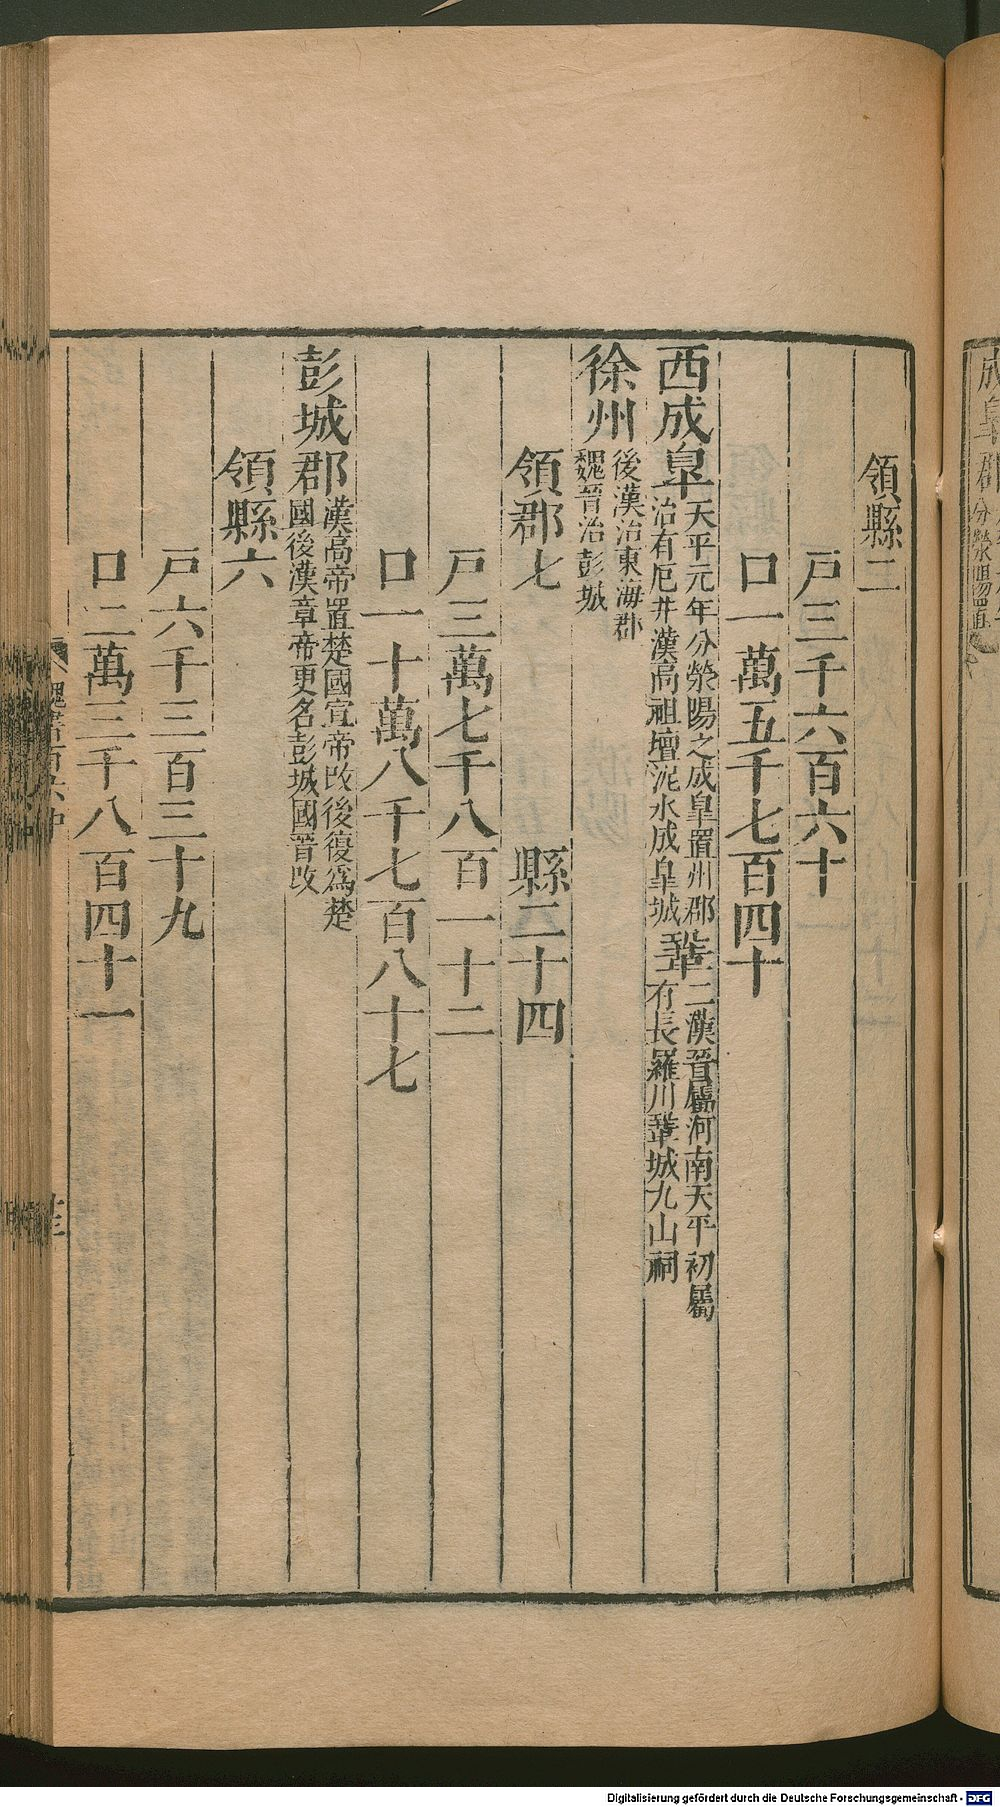 領縣二
戸三千六百六十
口一萬五千七百四十
西成臯天平元年分滎陽之成臯置州郡治有厄井漢高祖壇汜水成臯城鞏二漢晉屬河南天平初屬有長羅川鞏城九山祠
徐州後漢治東海郡魏晉治彭城
領郡七 縣二十四
戸三萬七千八百一十二
口一十萬八千七百八十七
彭城郡漢高帝置楚國宣帝改後復爲楚國後漢章帝更名彭城國晉改
領縣六
戸六千三百三十九
口二萬三千八百四十一
魏書百六中
Digitalisierung gefördert durch die Deutsche Forschungsgemeinschaft - DFG